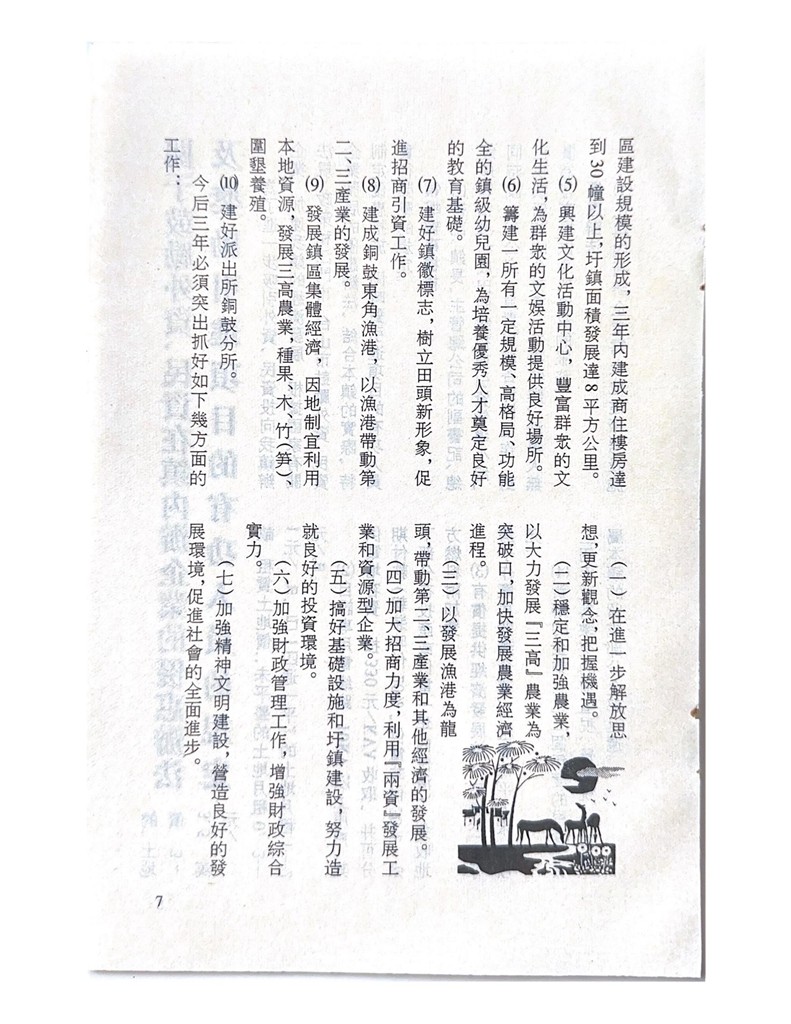 區建設規模的形成，三年內建成商住樓房達
到30幢以上，圩鎮面積發展達8平方公里。
⑸ 興建文化活動中心，豐富群衆的文
化生活，為群衆的文娛活動提供良好場所。
⑹ 籌建一所有一定規模、高格局、功能
全的鎮級幼兒園，為培養優秀人才奠定良好
的教育基礎。
⑺ 建好鎮徽標志，樹立田頭新形象，促
進招商引資工作。
⑻ 建成銅鼓東角漁港，以漁港帶動第
二、三產業的發展。
⑼ 發展鎮區集體經濟，因地制宜利用
本地資源，發展三高農業，種果、木、竹(笋)、
圍墾養殖。
⑽ 建好派出所銅鼓分所。
今后三年必須突出抓好如下幾方面的
工作：
（一）在進一步解放思
想，更新觀念，把握機遇。
（二）穩定和加強農業，
以大力發展『三高』農業為
突破口，加快發展農業經濟
進程。
（三）以發展漁港為龍
頭，帶動第二、三產業和其他經濟的發展。
（四）加大招商力度，利用『兩資』發展工
業和資源型企業。
（五）搞好基礎設施和圩鎮建設，努力造
就良好的投資環境。
（六）加強財政管理工作，增強財政綜合
實力。
（七）加強精神文明建設，營造良好的發
展環境，促進社會的全面進步。
7